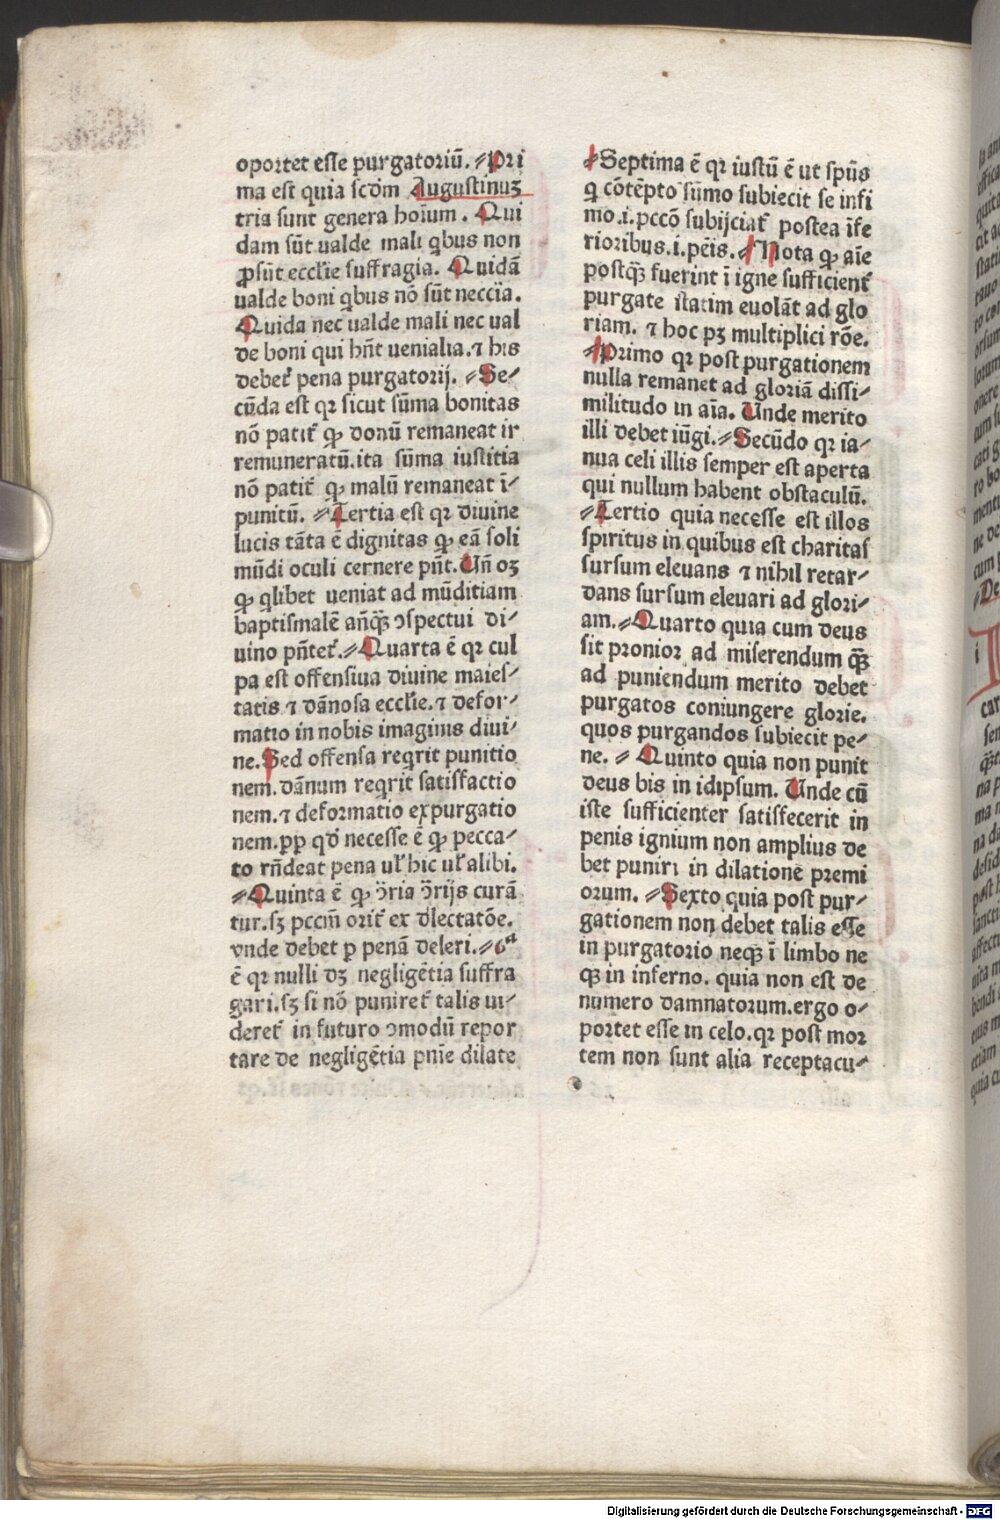 oportet esse purgatoriū. Pri
ma est quia scdm̄ Augustinuʒ
tria sunt genera hoīum. Qui
dam sūt ualde mali qbus non
ꝓsūt ecclīe suffragia. Quidā
ualde boni qbus nō sūt neccīa.
Quida nec ualde mali nec ual
de boni qui hn̄t uenialia. ⁊ his
debet᷑ pena purgatorij. Se⸗
cūda est qꝛ sicut sūma bonitas
nō patit᷑ ꝙ donū remaneat ir
remuneratū. ita sūma iustitia
nō patit᷑ ꝙ malū remaneat ī⸗
punitū. Tertia est qꝛ diuine
lucis tāta ē dignitas ꝙ eā soli
mūdi oculi cernere pn̄t. Un̄ oʒ
ꝙ qlibet ueniat ad mūditiam
baptismalē an̄qꝫ̄ ɔspectui di⸗
uino pn̄tet᷑. Quarta ē qꝛ cul
pa est offensiua diuine maies⸗
tatis ⁊ dānosa ecclīe. ⁊ defor⸗
matio in nobis imaginis diui⸗
ne. Sed offensa reqrit punitio
nem. dānum reqrit satisfactio
nem. ⁊ deformatio expurgatio
nem. ꝓp qd̄ necesse ē ꝙ pecca⸗
to rn̄deat pena ul᷑ hic ul᷑ alibi.
Quinta ē ꝙ ɔ̄ria ɔ̄rijs curā
tur. sʒ pccm̄ orit᷑ ex dlectatōe.
vnde debet p penā deleri. 6ᵃ
ē qꝛ nulli dʒ negligētia suffra
gari. sʒ si nō puniret᷑ talis ui⸗
deret᷑ in futuro ɔmodū repor
tare de negligētia pn̄ie dilate
Septima ē qꝛ iustū ē ut sp̄us
q cōtēpto sūmo subiecit se infi
mo .i. pccō subijciat᷑ postea īfe
rioribus .i. pēis. Nota ꝙ aīe
postqꝫ̄ fuerint ī igne sufficient᷑
purgate statim euolāt ad glo
riam. ⁊ hoc pʒ multiplici rōe.
Primo qꝛ post purgationem
nulla remanet ad gloriā dissi⸗
militudo in aīa. Unde merito
illi debet iūgi. Secūdo qꝛ ia⸗
nua celi illis semper est aperta
qui nullum habent obstaculū.
Tertio quia necesse est illos
spiritus in quibus est charitas
sursum eleuans ⁊ nihil retar⸗
dans sursum eleuari ad glori⸗
am. Quarto quia cum deus
sit pronior ad miserendum qꝫ̄
ad puniendum merito debet
purgatos coniungere glorie.
quos purgandos subiecit pe⸗
ne. Quinto quia non punit
deus bis in idipsum. Unde cū
iste sufficienter satisfecerit in
penis ignium non amplius de
bet puniri in dilatione premi
orum. Sexto quia post pur⸗
gationem non debet talis esse
in purgatorio neqꝫ ī limbo ne
qꝫ in inferno. quia non est de
numero damnatorum. ergo o⸗
portet esse in celo. qꝛ post mor
tem non sunt alia receptacu⸗
Digitalisierung gefördert durch die Deutsche Forschungsgemeinschaft - DFG